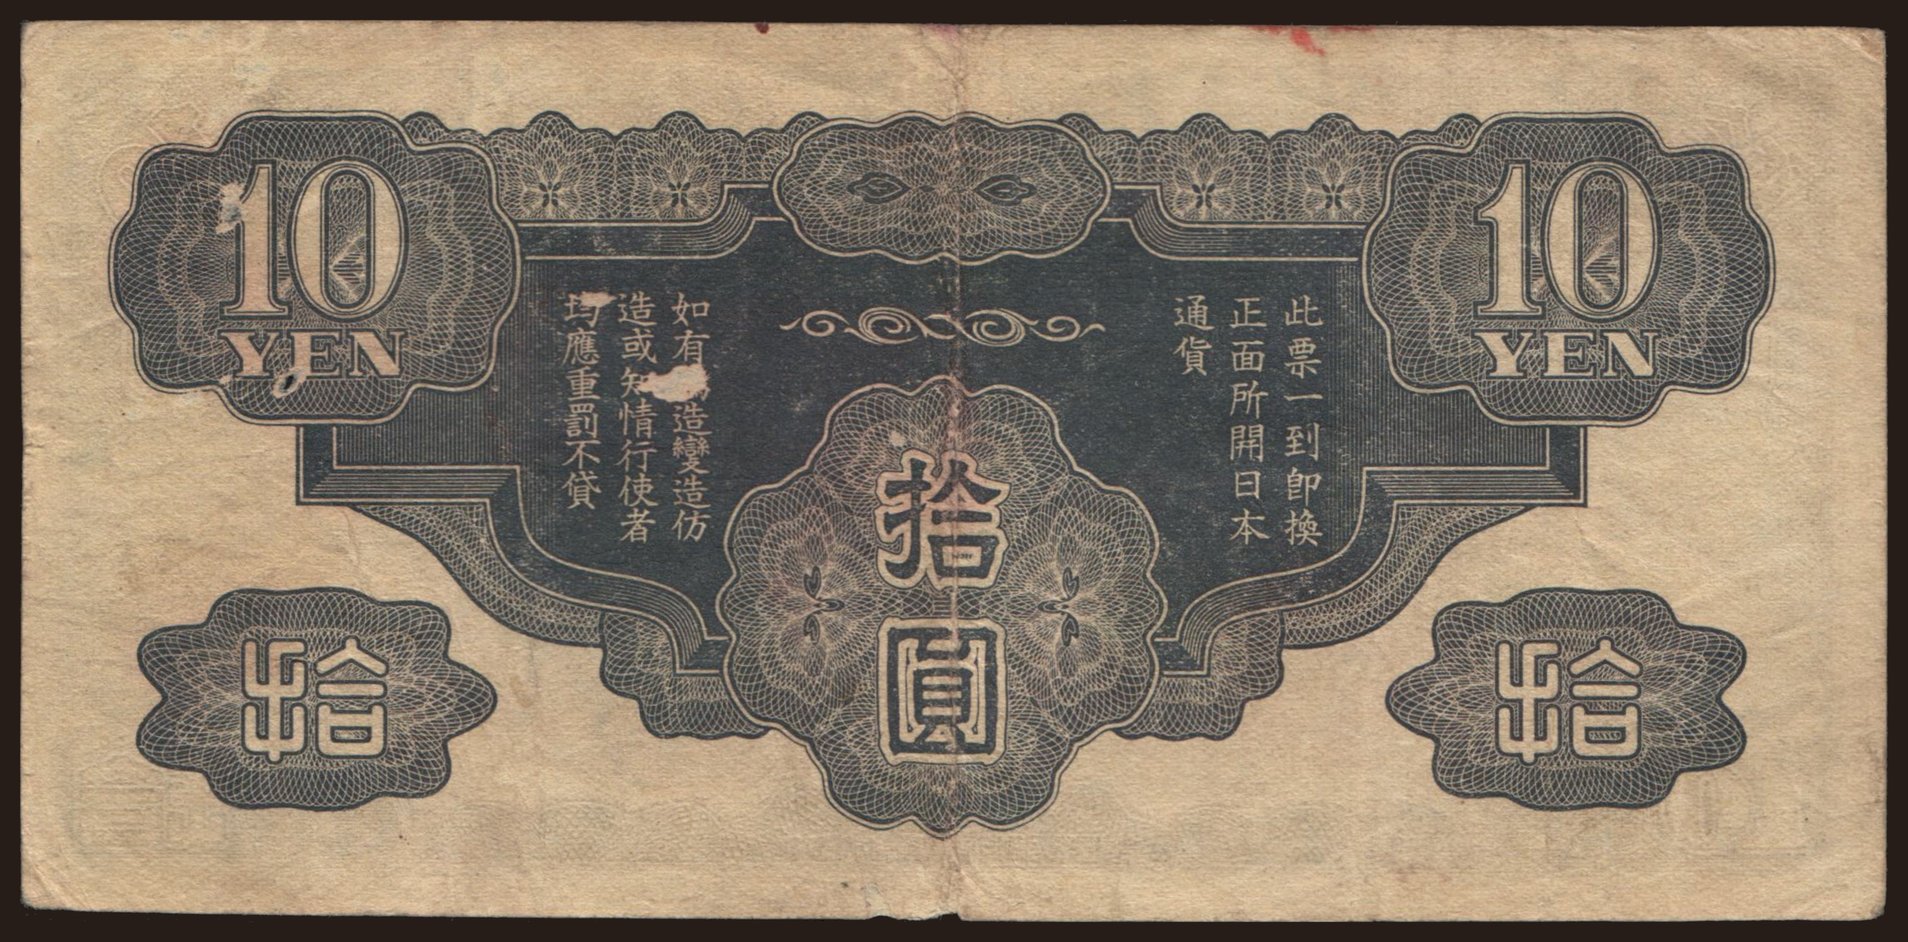 10
YEN
10
YEN
此票一到卽換
正面所開日本
通貨
如有 造變造仿
造或知情行使者
均應重罰不貸
拾圓
拾
拾